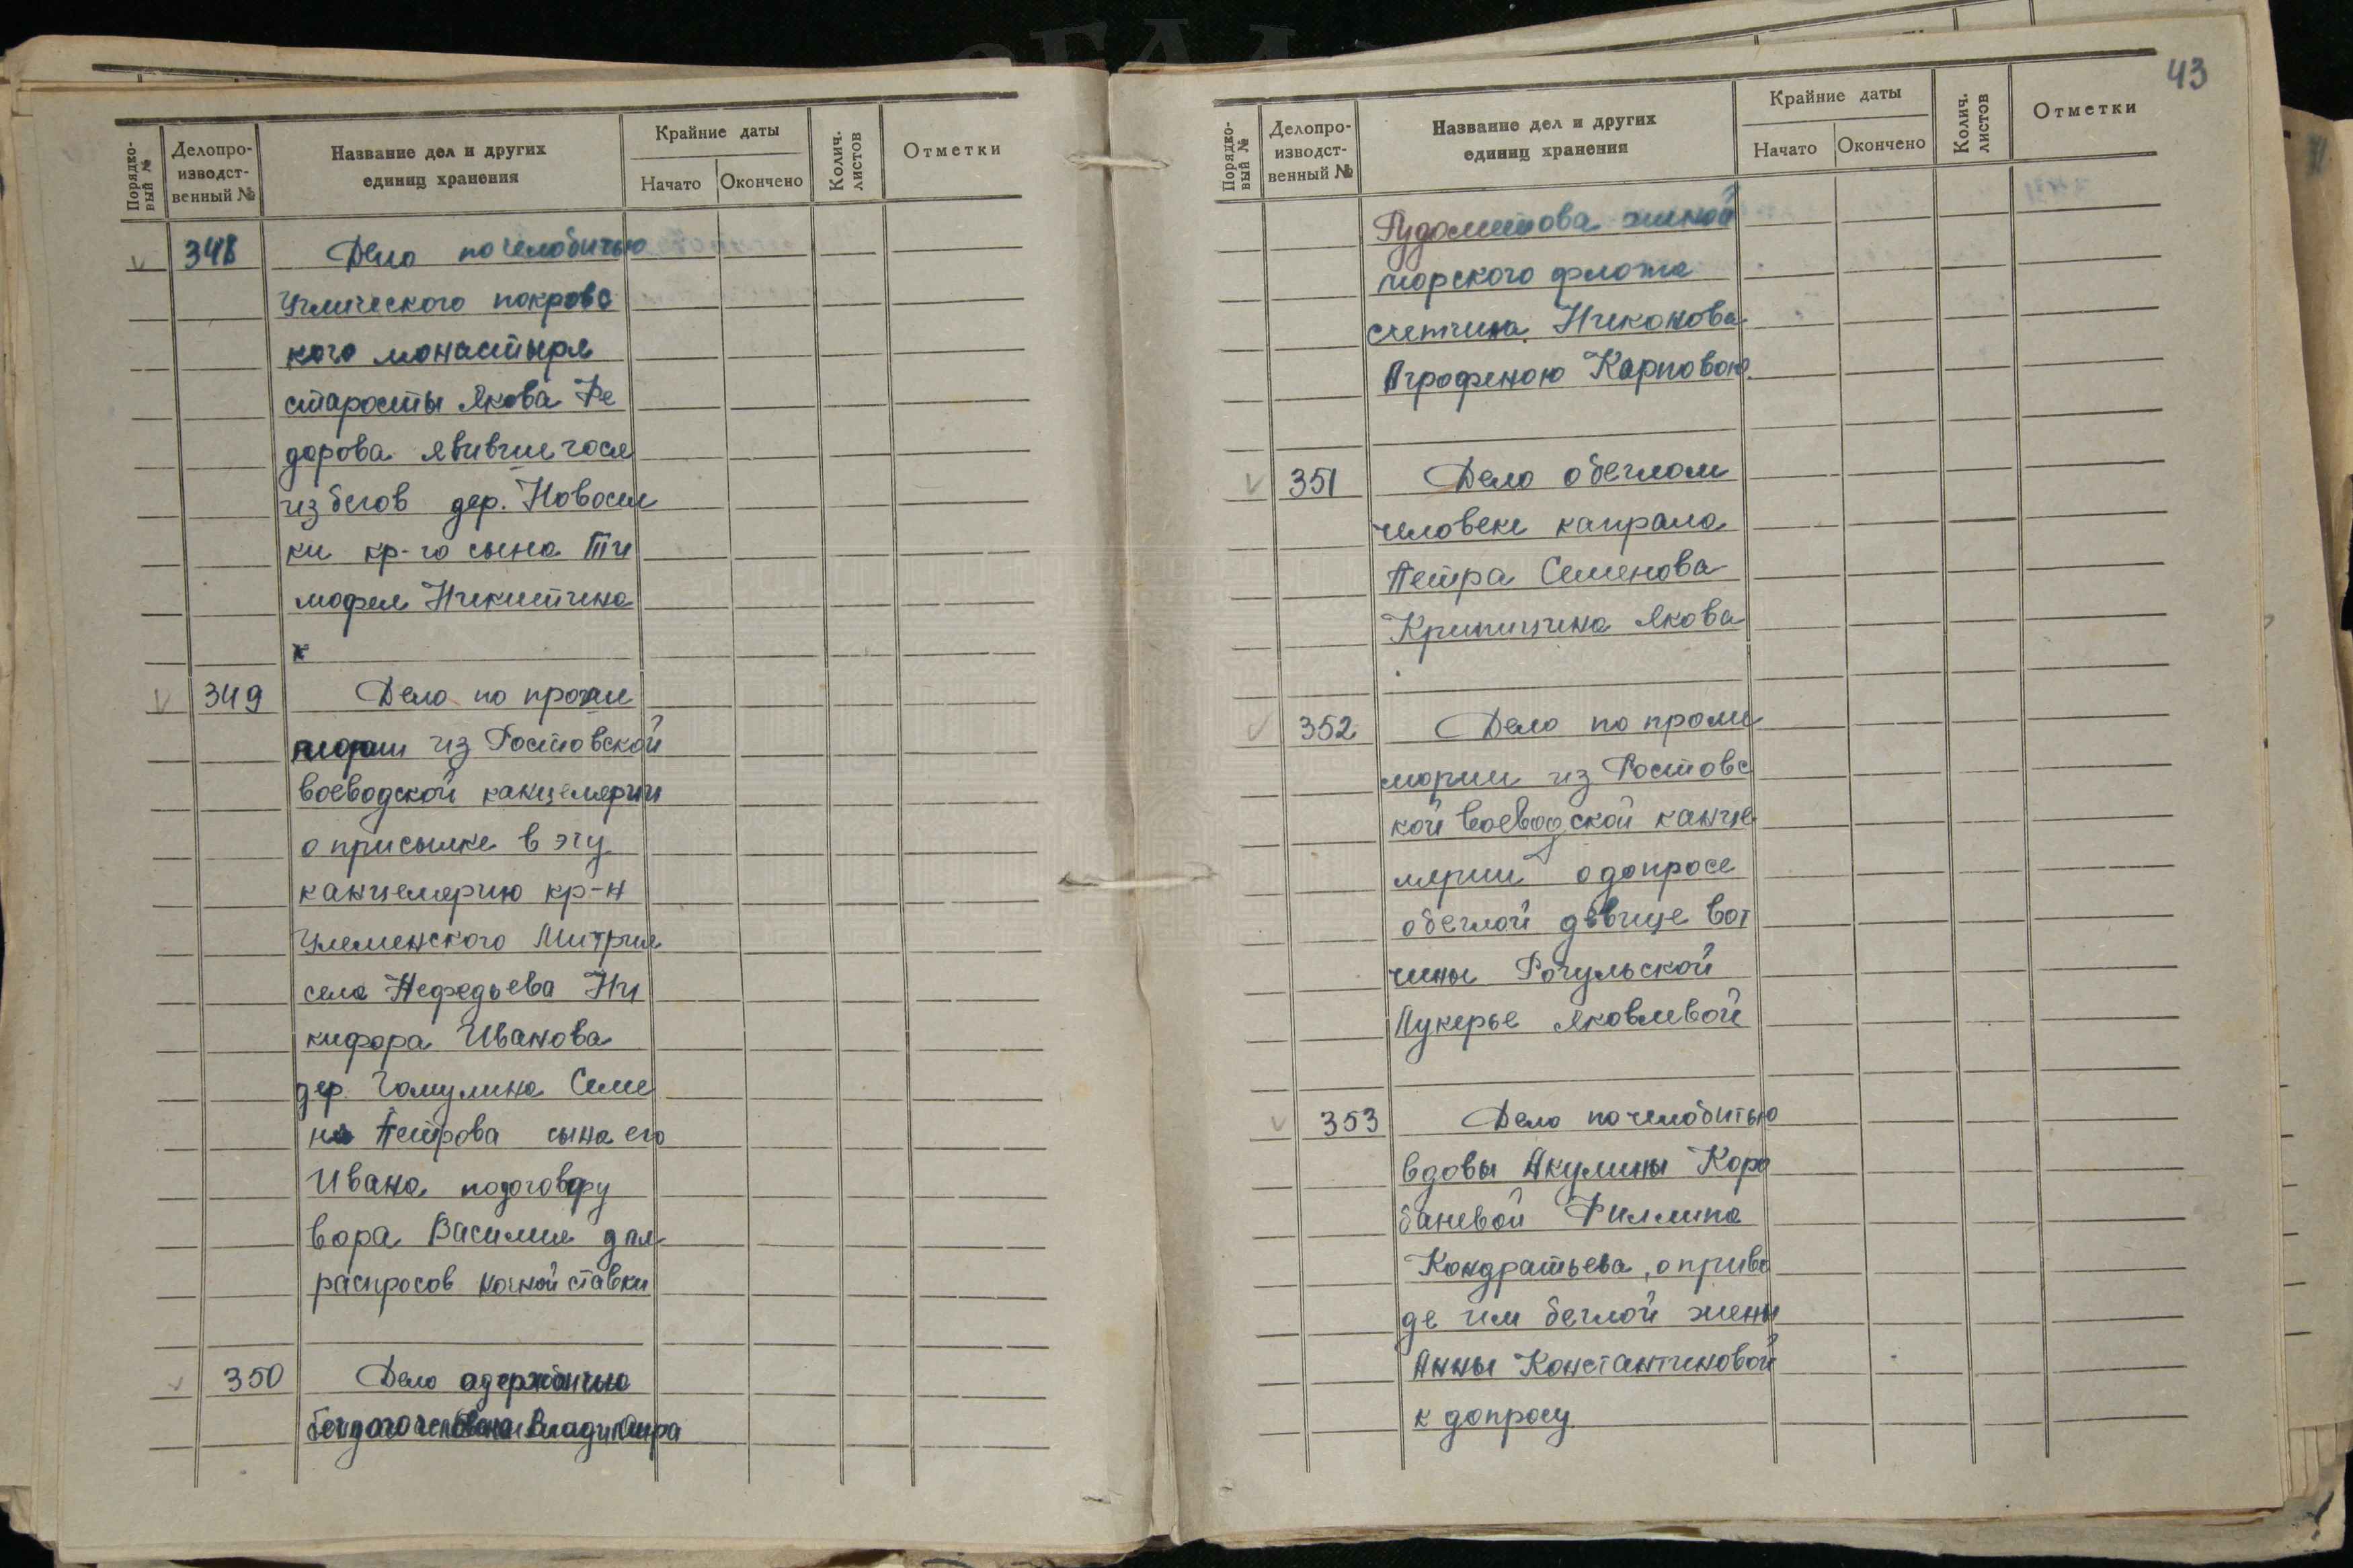 Порядко-
вый №
Делопро-
изводст-
венный №
Название дел и других
единиц хранения
Крайние даты
Начато
Окончено
Колич.
листов
Отметки
348
Дело по челобитью
Угличского покровс
кого монастыря
старосты Якова Фе
дорова явившегося
из бегов дер. Новосел
ки кр-го сына Ти
мофея Никитина
к
349
Дело по проме
мории из Ростовской
воеводской канцелярии
о присылке в эту
канцелярию кр-н
Улеменского Митрия
села Нефедьева Ни
кифора Иванова
дер. Гомулина Семе
на Петрова сына его
Ивана по договору
вора Василия для
распросов очной ставки
350
Дело
беглого человека Владимира
43
Порядко-
вый №
Делопро-
изводст-
венный №
Название дел и других
единиц хранения
Крайние даты
Начато
Окончено
Колич.
листов
Отметки
Рудометова женой
морского флота
счетчика Никонова
Агрофеною Карповою
351
Дело о беглом
человеке капрала
Петра Семенова
Якова
352
Дело по проме
мории из Ростовс
кой воеводской канце
лярии о допросе
о беглой девице вот
чины Рогульской
Лукерье Яковлевой
353
Дело по челобитью
вдовы Акулины Коро
баневой Филлипа
Кондратьева, о приво
де им беглой жены
Анны Константиновой
к допросу